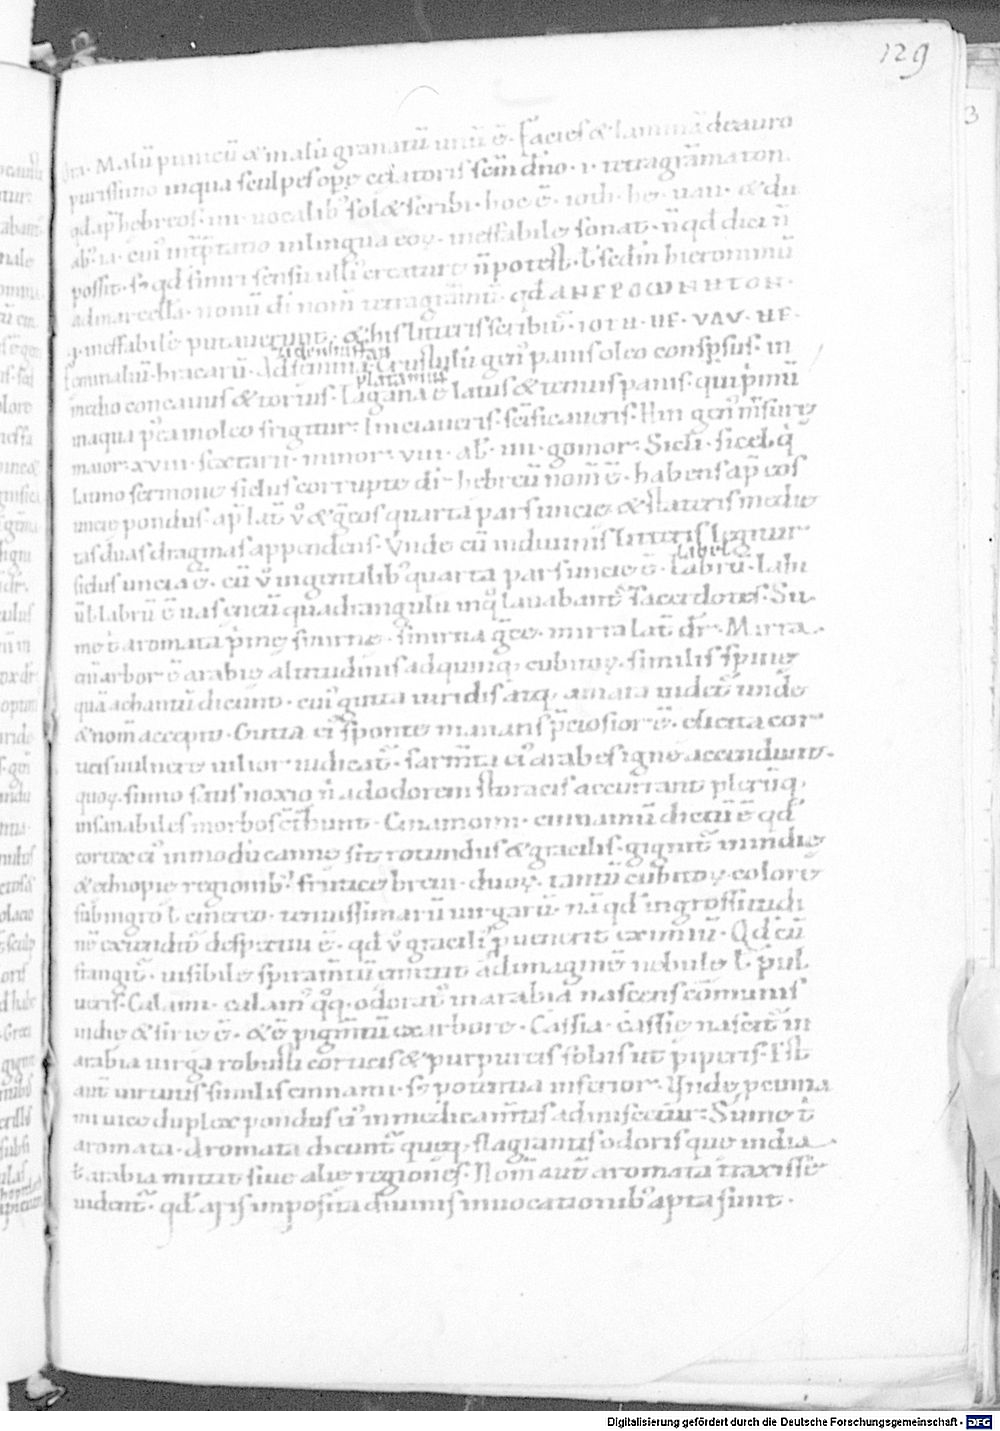 129
dra. Malū punicū & malū granatū unū ē. Facies & laminā de auro
purissimo inqua sculpes opę celatoris scm̄ dn̄o. i. tetragrāmaton.
qđ ap̄ hebreos. iiii. uocalib; sol& scribi. hoc ē. ioth. he. uau. & du
ab; ia. cui; int̄ptatio inlingua eoꝝ. ineffabile sonat. n̄ qđ dici n̄
possit. sꝫ qđ finiri sensu ulli; creature n̄ potest. ł sedm̄ hieronimū
admarcellā. nonū di nom̄ tetragrāmū. qđ
q. ineffabile putauerunt. & his litteris scribitᷣ. IOTH. HE. VAV. HE.
feminaliū. bracarū. Ad femina. Crustulū gen; panis oleo conspsus. in
medio concauus & tortus. Lagana ē latus & tenuis panis. qui p̄mū
platamus
inaqua p; ea inoleo frigitur. Iniciaueris. scīficaueris. Hin gen; m̄surę
maior. xviii. sextarii. minor. viii. ał. iiii. gomor. Sicli. sicel. q̄
latino sermone siclus corrupte dr̄ hebreū nom̄ ē. habens ap̄ eos
uncie pondus. ap̄ lat̄ ů & gr̄cos quarta pars uncie. & stateris medie
tas duas dragmas appendens. Vnde cū indiuinis litteris legitur
siclus uncia ē. cū ů ingentilib; quarta pars uncie ē. Labrū. labi
ūł labrū ē uas eneū quadrangulū inq; lauabantᷣ sacerdotes. Su
me t̄ aromata p̄me smirne. smirna gr̄ce. mirra lat̄ dr̄. Mirra.
eni arbor ē arabię altitudinis adquinq; cubitoꝝ. similis spinę
quā achantū dicunt. cui; gutta uiridis atq; amara undetᷣ unde
& nom̄ accepit. Gutta ei; sponte manans p̄ciosior ē. elicita cor
ticis uulnere uilior iudicatᷣ. Sarm̄ta ei; arabes ignē accendunt.
quoꝝ. fumo satis noxio n̄ adodorem storacis accurrant pleriq;
insanabiles morbos cᵗhunt. Cinamomi. cinnamū dictū ē qđ
cortex ei; inmodū canne sit rotundus & gracilis. gignitᷣ inindię
& ethiopię regionib; frutice breui. duoꝝ. tantū cubitoꝝ. colore
subnigro ł cinereo. tenuissimarū uirgarū. nā qđ ingrossitudi
nē extenditᷣ despectui ē. qđ ů gracili; p̄uenerit eximiū. Qđ cū
frangitᷣ. uisibile spiram̄tū emittit adimaginē nebulę ł pul
ueris. Calami. calam; q;q; odorat; inarabia nascens cōmunis
indię & sirię ē. & ē pigm̄tū exarbore. Cassia. cassię nascitᷣ in
arabia uirga robusti corticis & purpureis foliis ut piperis. Est
aut̄ uirtutis similis cinnamū. sꝫ potentia inferior. Vnde p cinna
mi uice duplex pondus ei; inmedicam̄tis admiscetur. Sumo t̄
aromata. Aromata dicuntᷣ quęq; flagrantis odoris que india.
ł arabia mittit siue alię regiones. Nom̄ aut̄ aromata traxisse
uidentᷣ. qđ aris imposita diuinis inuocationib; apta sunt.
Digitalisierung gefördert durch die Deutsche Forschungsgemeinschaft - DFG